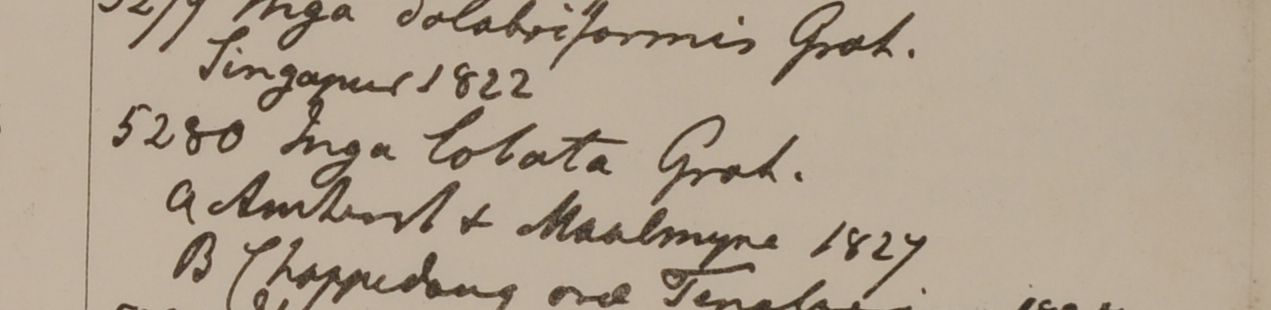 5279 Inga dolabriformis Grah.
Singapur 1822
5280 Inga lobata Grah.
a Amherst & Maalmyne 1827
B Chappedong